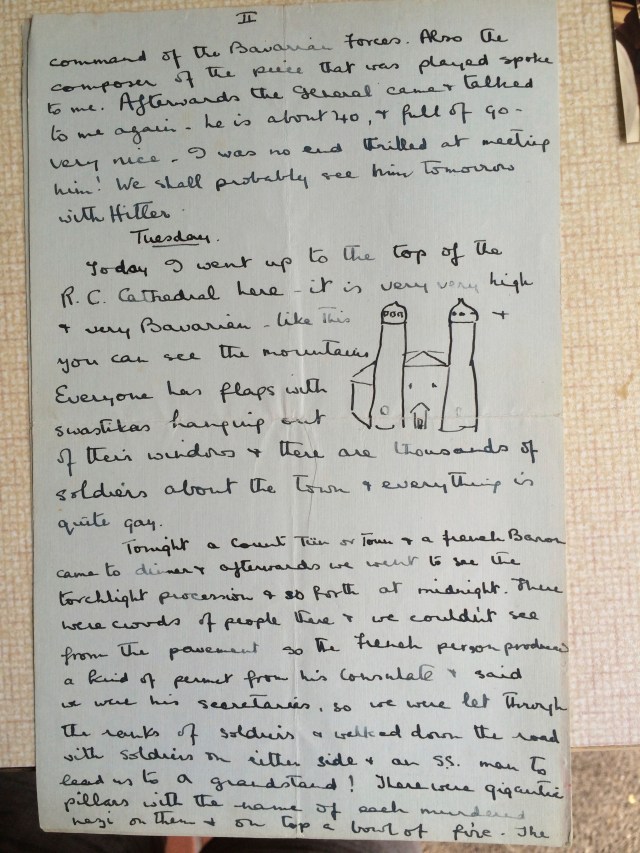 II
command of the Bavarian Forces. Also the
composer of the piece that was played spoke
to me. Afterwards the General came & talked
to me again - he is about 40, & full of go -
very nice - I was no end thrilled at meeting
him! We shall probably see him tomorrow
with Hitler.
Tuesday.
Today I went up to the top of the
R. C. Cathedral here - it is very very high
& very Bavarian - like this +
you can see the mountains
Everyone has flaps with
swastikas hanging out
of their windows & there are thousands of
soldiers about the town & everything is
quite gay.
Tonight a Count Tün or Toun & a french Baron
came to dinner & afterwards we went to see the
torchlight procession & so forth at midnight. There
were crowds of people there & we couldn't see
from the pavement so the French person produced
a kind of permet from his Consulate & said
we were his secretaries, so we were let through
the ranks of soldiers & walked down the road
with soldiers on either side & an S.S. man to
lead us to a grandstand! There were gigantic
pillars with the name of each murdered
nazi on them & on top a bowl of fire. The